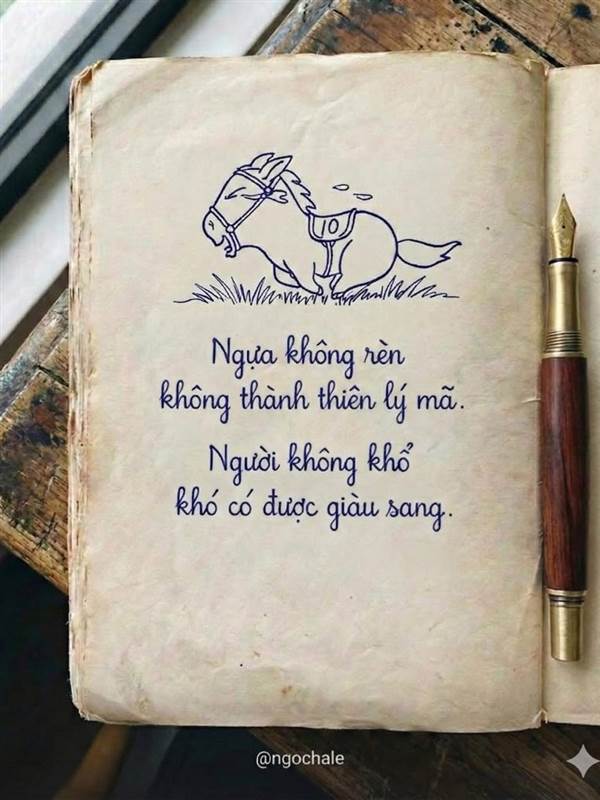 10
Ngựa không rèn
không thành thiên lý mã.
Người không khổ
khó có được giàu sang.
@ngochale